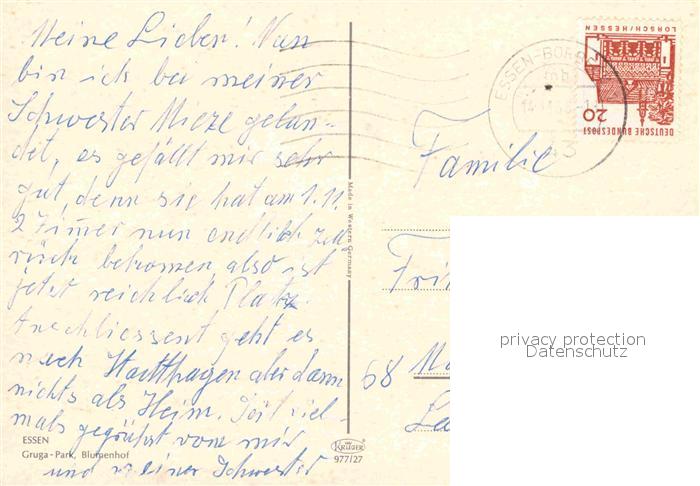 Meine Lieben! Nun
bin ich bei meiner
Schwester Mieze gelan-
det, es gefällt mir sehr
gut, denn sie hat am 1.11.
2 Zimmer nun endlich zu
rück bekommen, also ist
jetzt reichlich Platz.
Anschliessent geht es
nach Stadthagen aber dann
nichts als Heim. Seit viel-
mals gegrüßt von mir
und meiner Schwester
ESSEN
Gruga-Park, Blumenhof
Made in Western Germany
KRÜGER
977/27
ESSEN-BORB
43
LORSCH/HESSEN
20
DEUTSCHE BUNDESPOST
Familie
Fri
68
privacy protection
Datenschutz